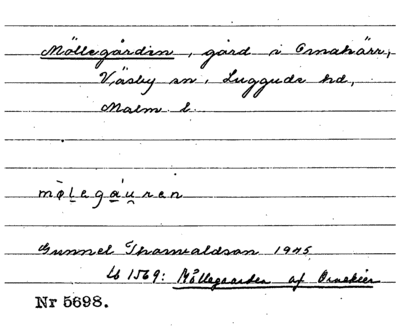 Möllegården, gård i Ornakärr,
Väsby sn, Luggude hd,
Malm l.
mø̀legáu̯ren
Gunnel Thorvaldson 1945
Lb 1569: Möllegaarden af Ornekier
Nr 5698.